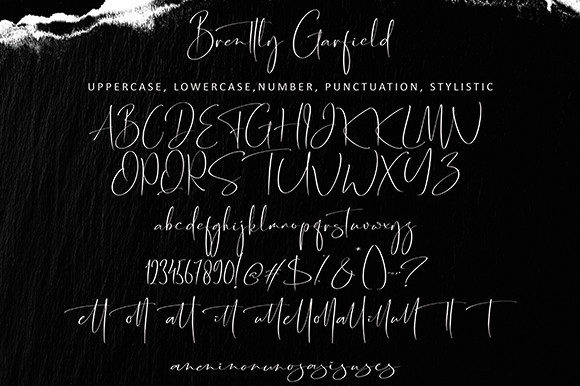 Brenttly Garfield
UPPERCASE, LOWERCASE,NUMBER, PUNCTUATION, STYLISTIC
ABCDEFGHIJKLMN
OPQRSTUVWXYZ
abcdefghijklmnopqrstuvwxyz
1234567890!@#$%&*()-:?
ett ott att itt utt ell oll all ill ull tt T
an en in on un os as is us es